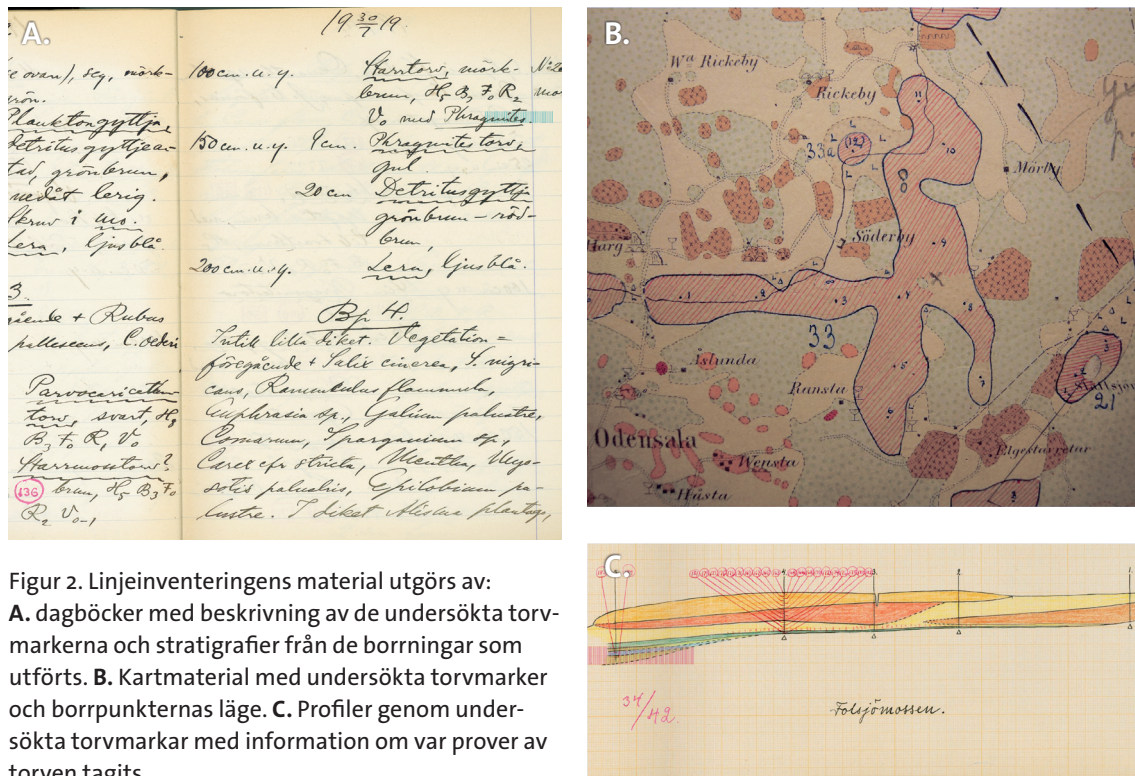 A.
19 30/7 19.
(e ovan), seg, mörk-
grön.
Planktongyttja,
Detritusgyttjea-
tad, grönbrun,
nedåt lerig.
Skruv i mo.
Lera, ljusblå.
3
gående + Rubus
pallescens, C. oederi
Parvocaricetum
torv, svart, H8
B3 F0 R1 V0
Starrmosstorv?
136 brun, H5 B3 F0
R2 V0-1
100 cm. u. y. Starrtorv, mörk-
brun, H5 B3 F0 R2
V0 med Phragmites.
150 cm. u. y. 9 cm. Phragmitestorv,
gul.
20 cm Detritusgyttja
grönbrun – röd-
brun,
200 cm. u. y. Lera, ljusblå.
Bp 4.
Intill lilla diket. Vegetation =
föregående + Salix cinerea, S. nigri-
cans, Ranunculus flammula,
Euphrasia sp., Galium palustre,
Comarum, Sparganium sp.,
Carex cfr stricta, Mentha, Myo-
sotis palustris, Epilobium pa-
lustre. I diket Alisma plantago,
B.
Wa Rickeby
Rickeby
11
12
33a
10
Mörby
8
Söderby
9
Harg
1 2 3 4
33
Åslunda
5
Ransta
7
21
6
Odensala
Wensta
Elgestarretar
Hästa
8
C.
4 3 2 1
34/H2
Folsjömossen.
Figur 2. Linjeinventeringens material utgörs av:
A. dagböcker med beskrivning av de undersökta torv-
markerna och stratigrafier från de borrningar som
utförts. B. Kartmaterial med undersökta torvmarker
och borrpunkternas läge. C. Profiler genom under-
sökta torvmarkar med information om var prover av
torven tagits